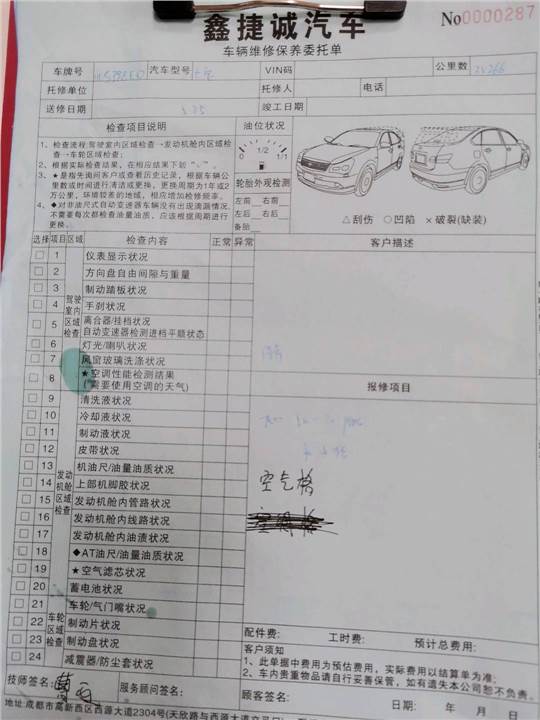 鑫捷诚汽车
No0000287
车辆维修保养委托单
车牌号 汽车型号 VIN码 公里数
托修单位 托修人 电话
送修日期 竣工日期
检查项目说明
1、检查流程:驾驶室内区域检查→发动机舱内区域检查→车轮区域检查;
2、根据实际检查结果，在相应结果下划“√”。
3、★是指先询问客户或查看历史记录，根据车辆公里数或时间进行清洁或更换，更换周期为1年或2万公里，环境较差的地域，相应增加检修频率。
4、◆对非油尺式自动变速器车辆没有出现滴漏情况，不需要每次都检查油量油质，应该根据周期进行更换。
油位状况
0 1/2 1/1
轮胎外观检测
左前 右前
左后 右后
备胎
△刮伤 ○凹陷 ×破裂(缺装)
选择 项目 区域 检查内容 正常 异常
客户描述
驾驶室内区域检查
1 仪表显示状况
2 方向盘自由间隙与重量
3 制动踏板状况
4 手刹状况
5 离合器/挂档状况
自动变速器检测进档平顺状态
6 灯光/喇叭状况
7 风窗玻璃洗涤状况
8 ★空调性能检测结果
(需要使用空调的天气)
发动机舱区域检查
9 清洗液状况
10 冷却液状况
11 制动液状况
12 皮带状况
13 机油尺/油量油质状况
14 上部机脚胶状况
15 发动机舱内管路状况
16 发动机舱内线路状况
17 发动机舱内油渍状况
18 ◆AT油尺/油量油质状况
19 ★空气滤芯状况
20 蓄电池状况
车轮区域检查
21 车轮/气门嘴状况
22 制动片状况
23 制动盘状况
24 减震器/防尘套状况
报修项目
空气格
配件费: 工时费: 预计总费用:
客户须知
1、此单据中费用为预估费用，实际费用以结算单为准;
2、车内贵重物品请自行妥善保管，如有遗失本公司恕不负责。
技师签名: 服务顾问签名: 顾客签名: 日期: 年 月 日
地址:成都市高新西区西源大道2304号